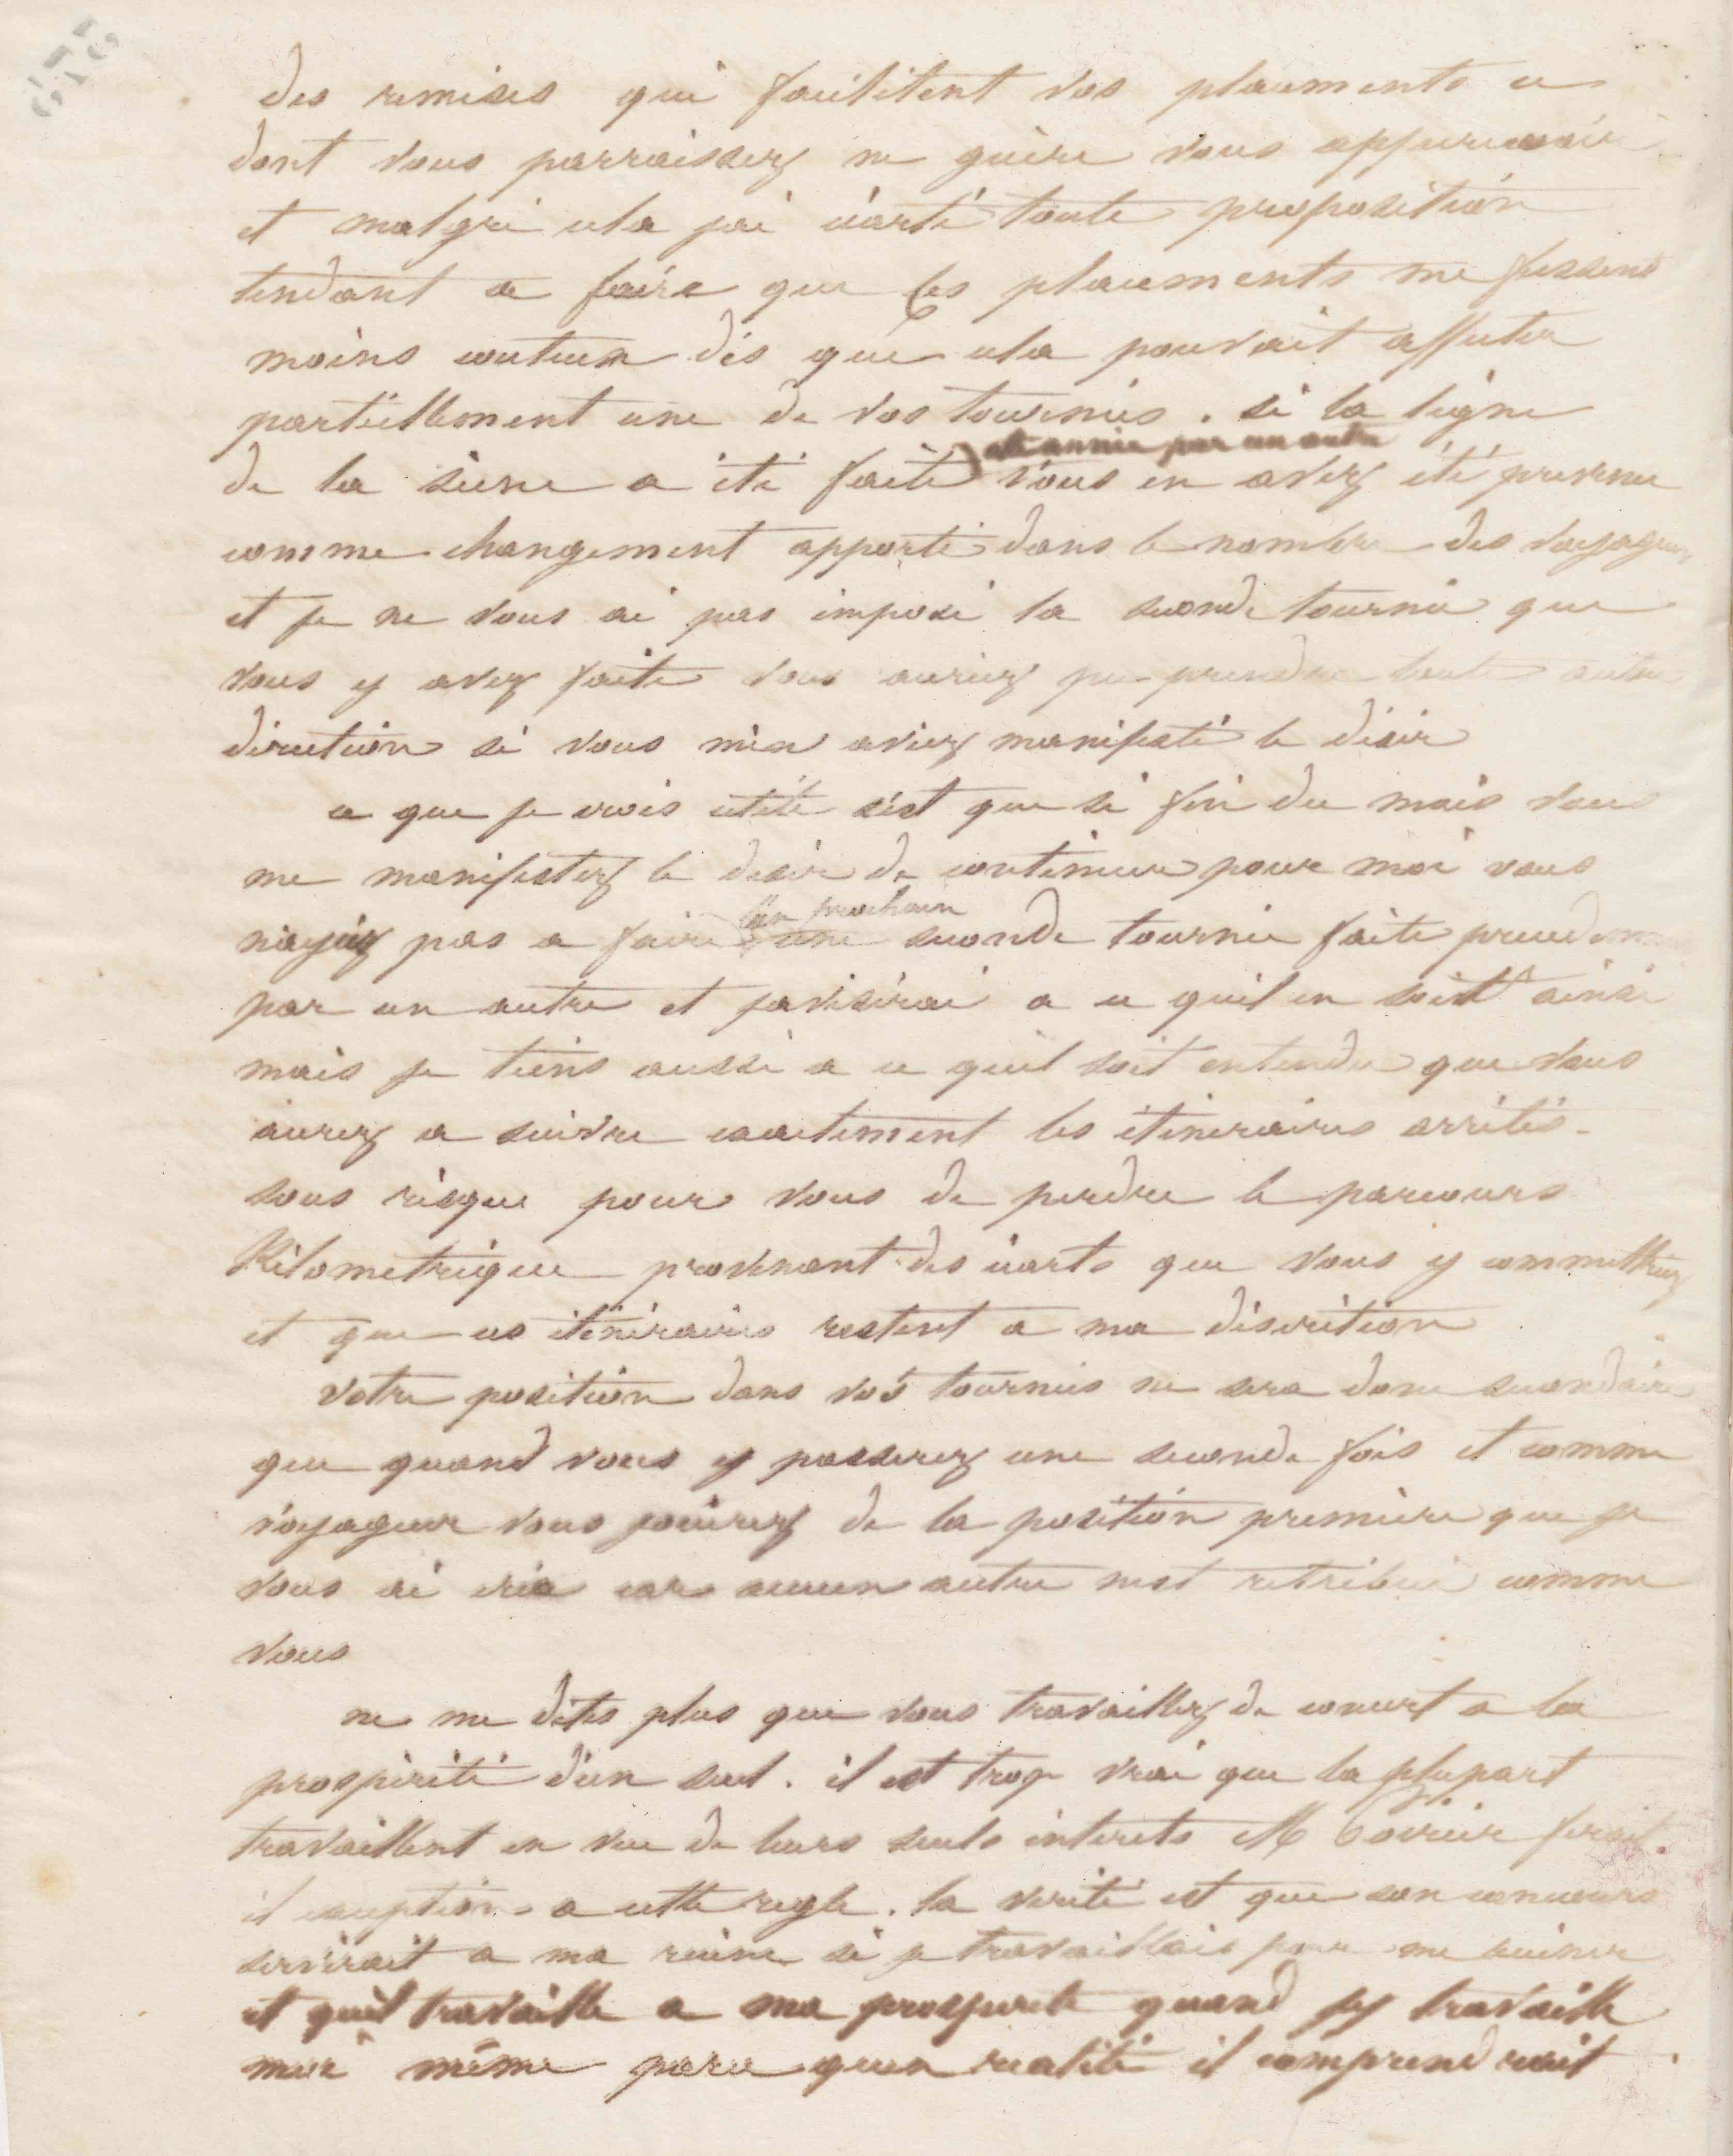 des remises qui facilitent vos placements et
dont vous parraissez ne guère vous appercevoir
et malgré cela jai écarté toute proposition
tendant a faire que les placements me fussent
moins couteux dès que cela pouvait affecter
partiellement une de vos tournées. si la ligne
cette année par un autre
de la seine a été faite vous en avez été prevenu
comme changement apporté dans le nombre des voyageurs
et je ne vous ai pas imposé la seconde tournée que
vous y avez faite vous auriez pu prendre toute autre
direction si vous m'en aviez manifesté le désir
ce que je crois utile c'est que si fin du mois vous
me manifestez le desir de continuer pour moi vous
l'an prochain
n'ayiez pas a faire une seconde tournée faite precedemment
par un autre et javiserai a ce quil en soit ainsi
mais je tiens aussi a ce quil soit entendu que vous
aurez a suivre exactement les itineraires arrêtés
sous risque pour vous de perdre le parcours
Kilometrique provenant des écarts que vous y commettriez
et que ces itinéraires restent a ma discrétion
votre position dans vos tournées ne sera donc secondaire
que quand vous y passerez une seconde fois et comme
voyageur vous jouirez de la position première que je
vous ai créé car aucun autre nest retribué comme
vous
ne me dites plus que vous travaillez de concert a la
prospérité d'un seul. il est trop vrai que la plupart
travaillent en vue de leurs seuls interets M ferait
il exception a cette regle. la verité est que son concours
servirait a ma ruine si je travaillais pour me ruiner
et quil travaille a ma prosperite quand jy travaille
moi même parce quen realité il comprendrait